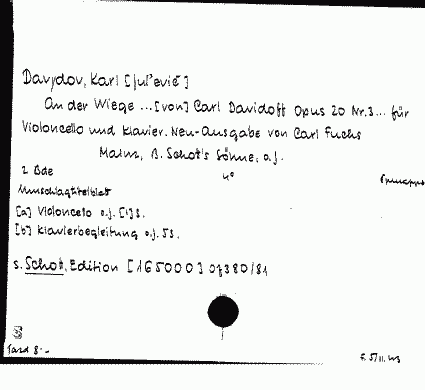 Davydov, Karl [Jul'evič]
An der Wiege ... [von] Carl Davidoff Opus 20 Nr.3 ... für
Violoncello und Klavier. Neu-Ausgabe von Carl Fuchs
Mainz, B. Schott's Söhne, o.J.
2 Bde 4°
Umschlagtitelblatt
[a] Violoncello o.J. [1] S.
[b] Klavierbegleitung o.J. 5 S.
s. Schott, Edition [165000] 07380/81